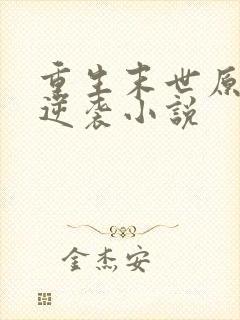 重生末世原
逆袭小说
金杰安